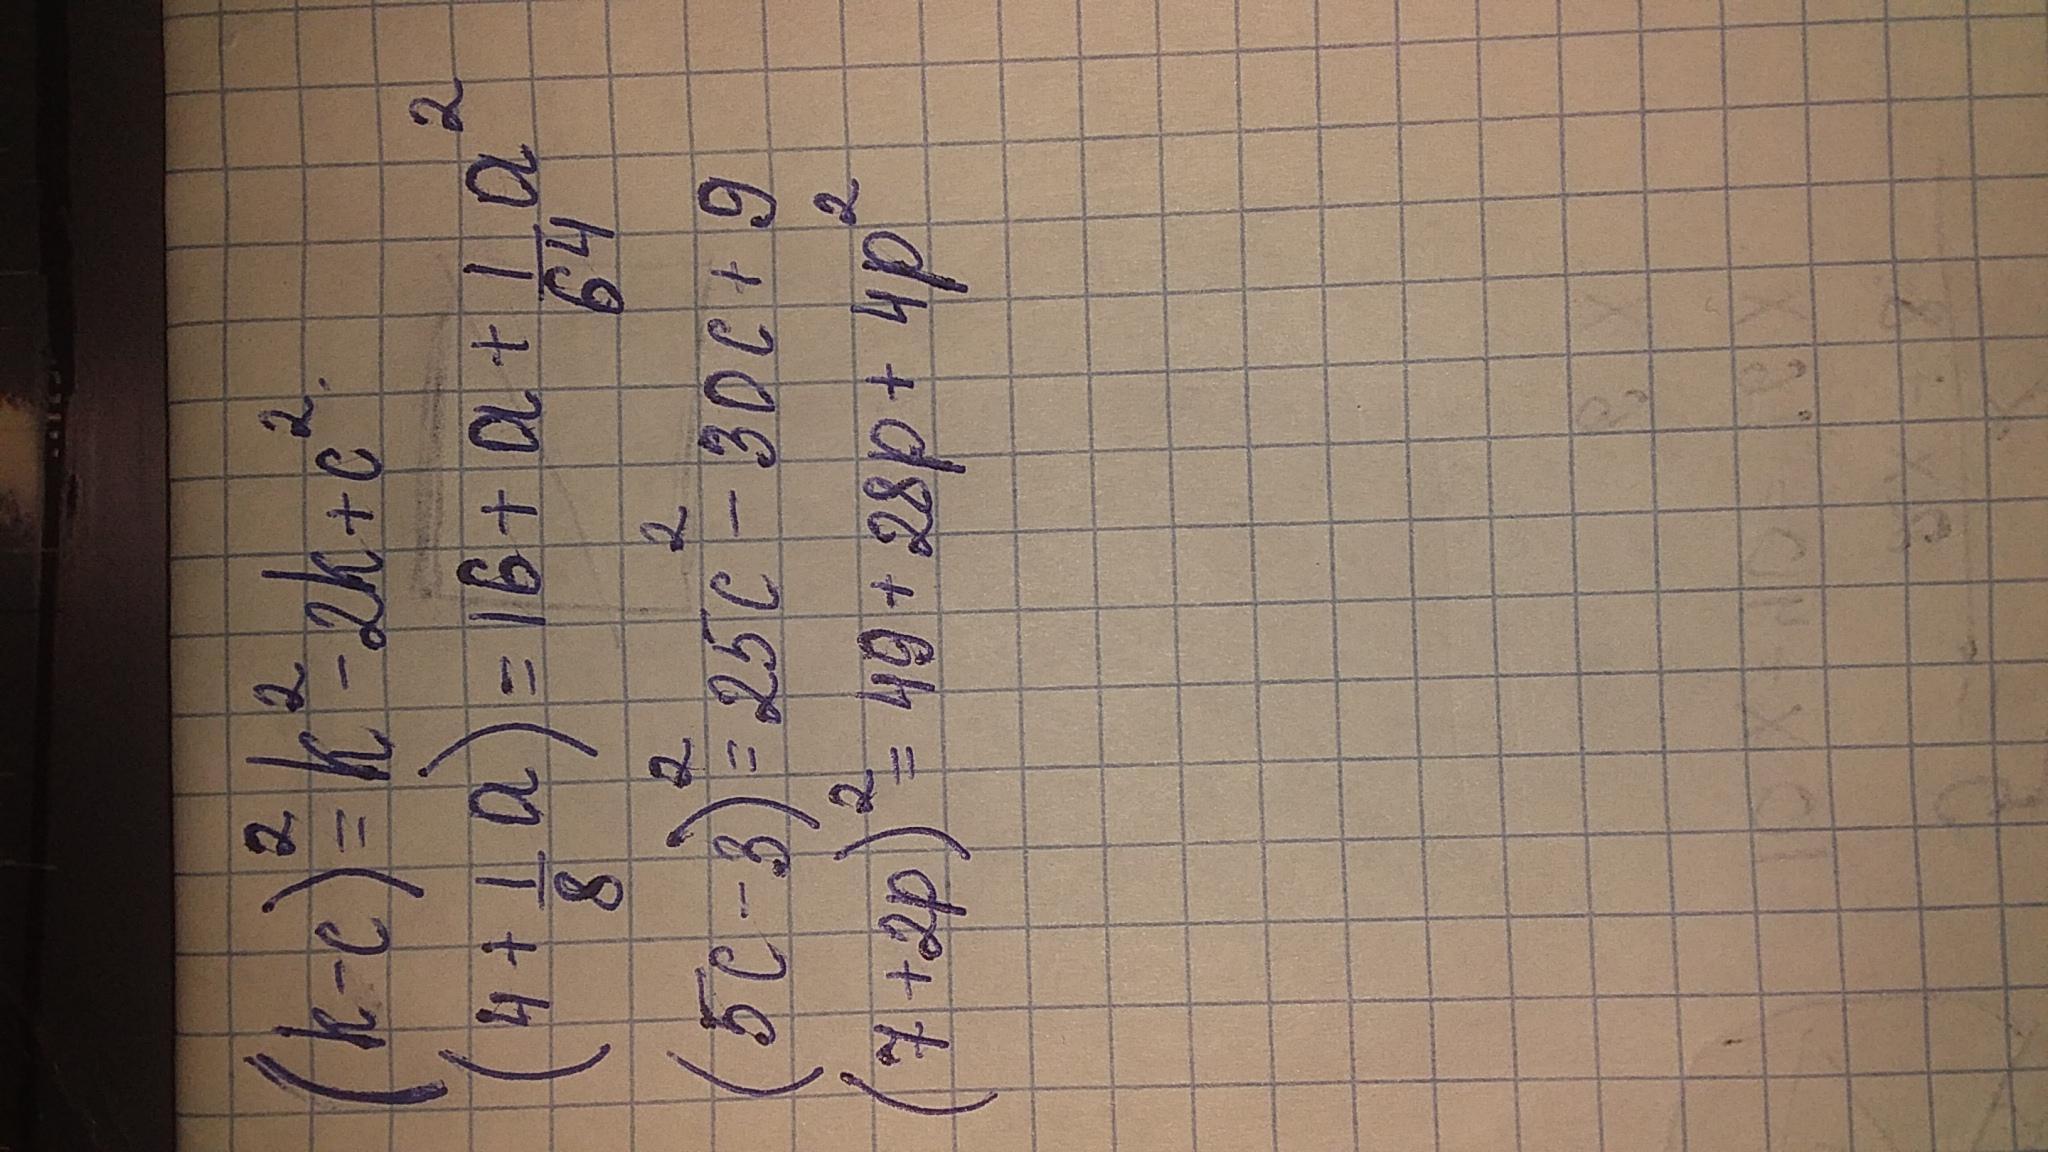 (k-c)² = k² - 2k + c².
(4 + 1/8 a) = 16 + a + 1/64 a²
(5c - 3)² = 25c² - 30c + 9
(7 + 2p)² = 49 + 28p + 4p²